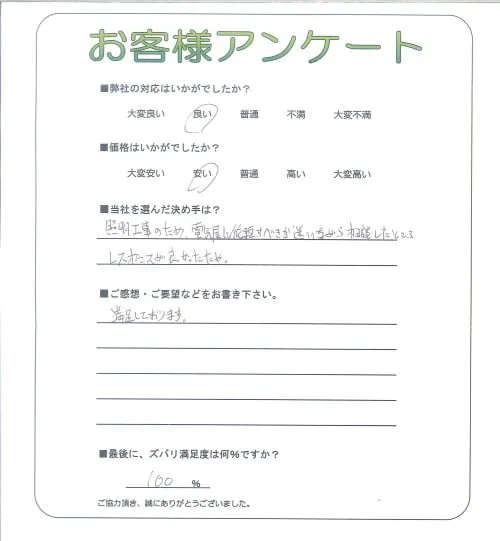 お客様アンケート
■弊社の対応はいかがでしたか?
大変良い 良い 普通 不満 大変不満
■価格はいかがでしたか?
大変安い 安い 普通 高い 大変高い
■当社を選んだ決め手は?
照明工事のため、電気屋に依頼すべきか迷いながら相談したところ
レスポンスが良かったため。
■ご感想・ご要望などをお書き下さい。
満足しております。
■最後に、ズバリ満足度は何%ですか?
100 %
ご協力頂き、誠にありがとうございました。